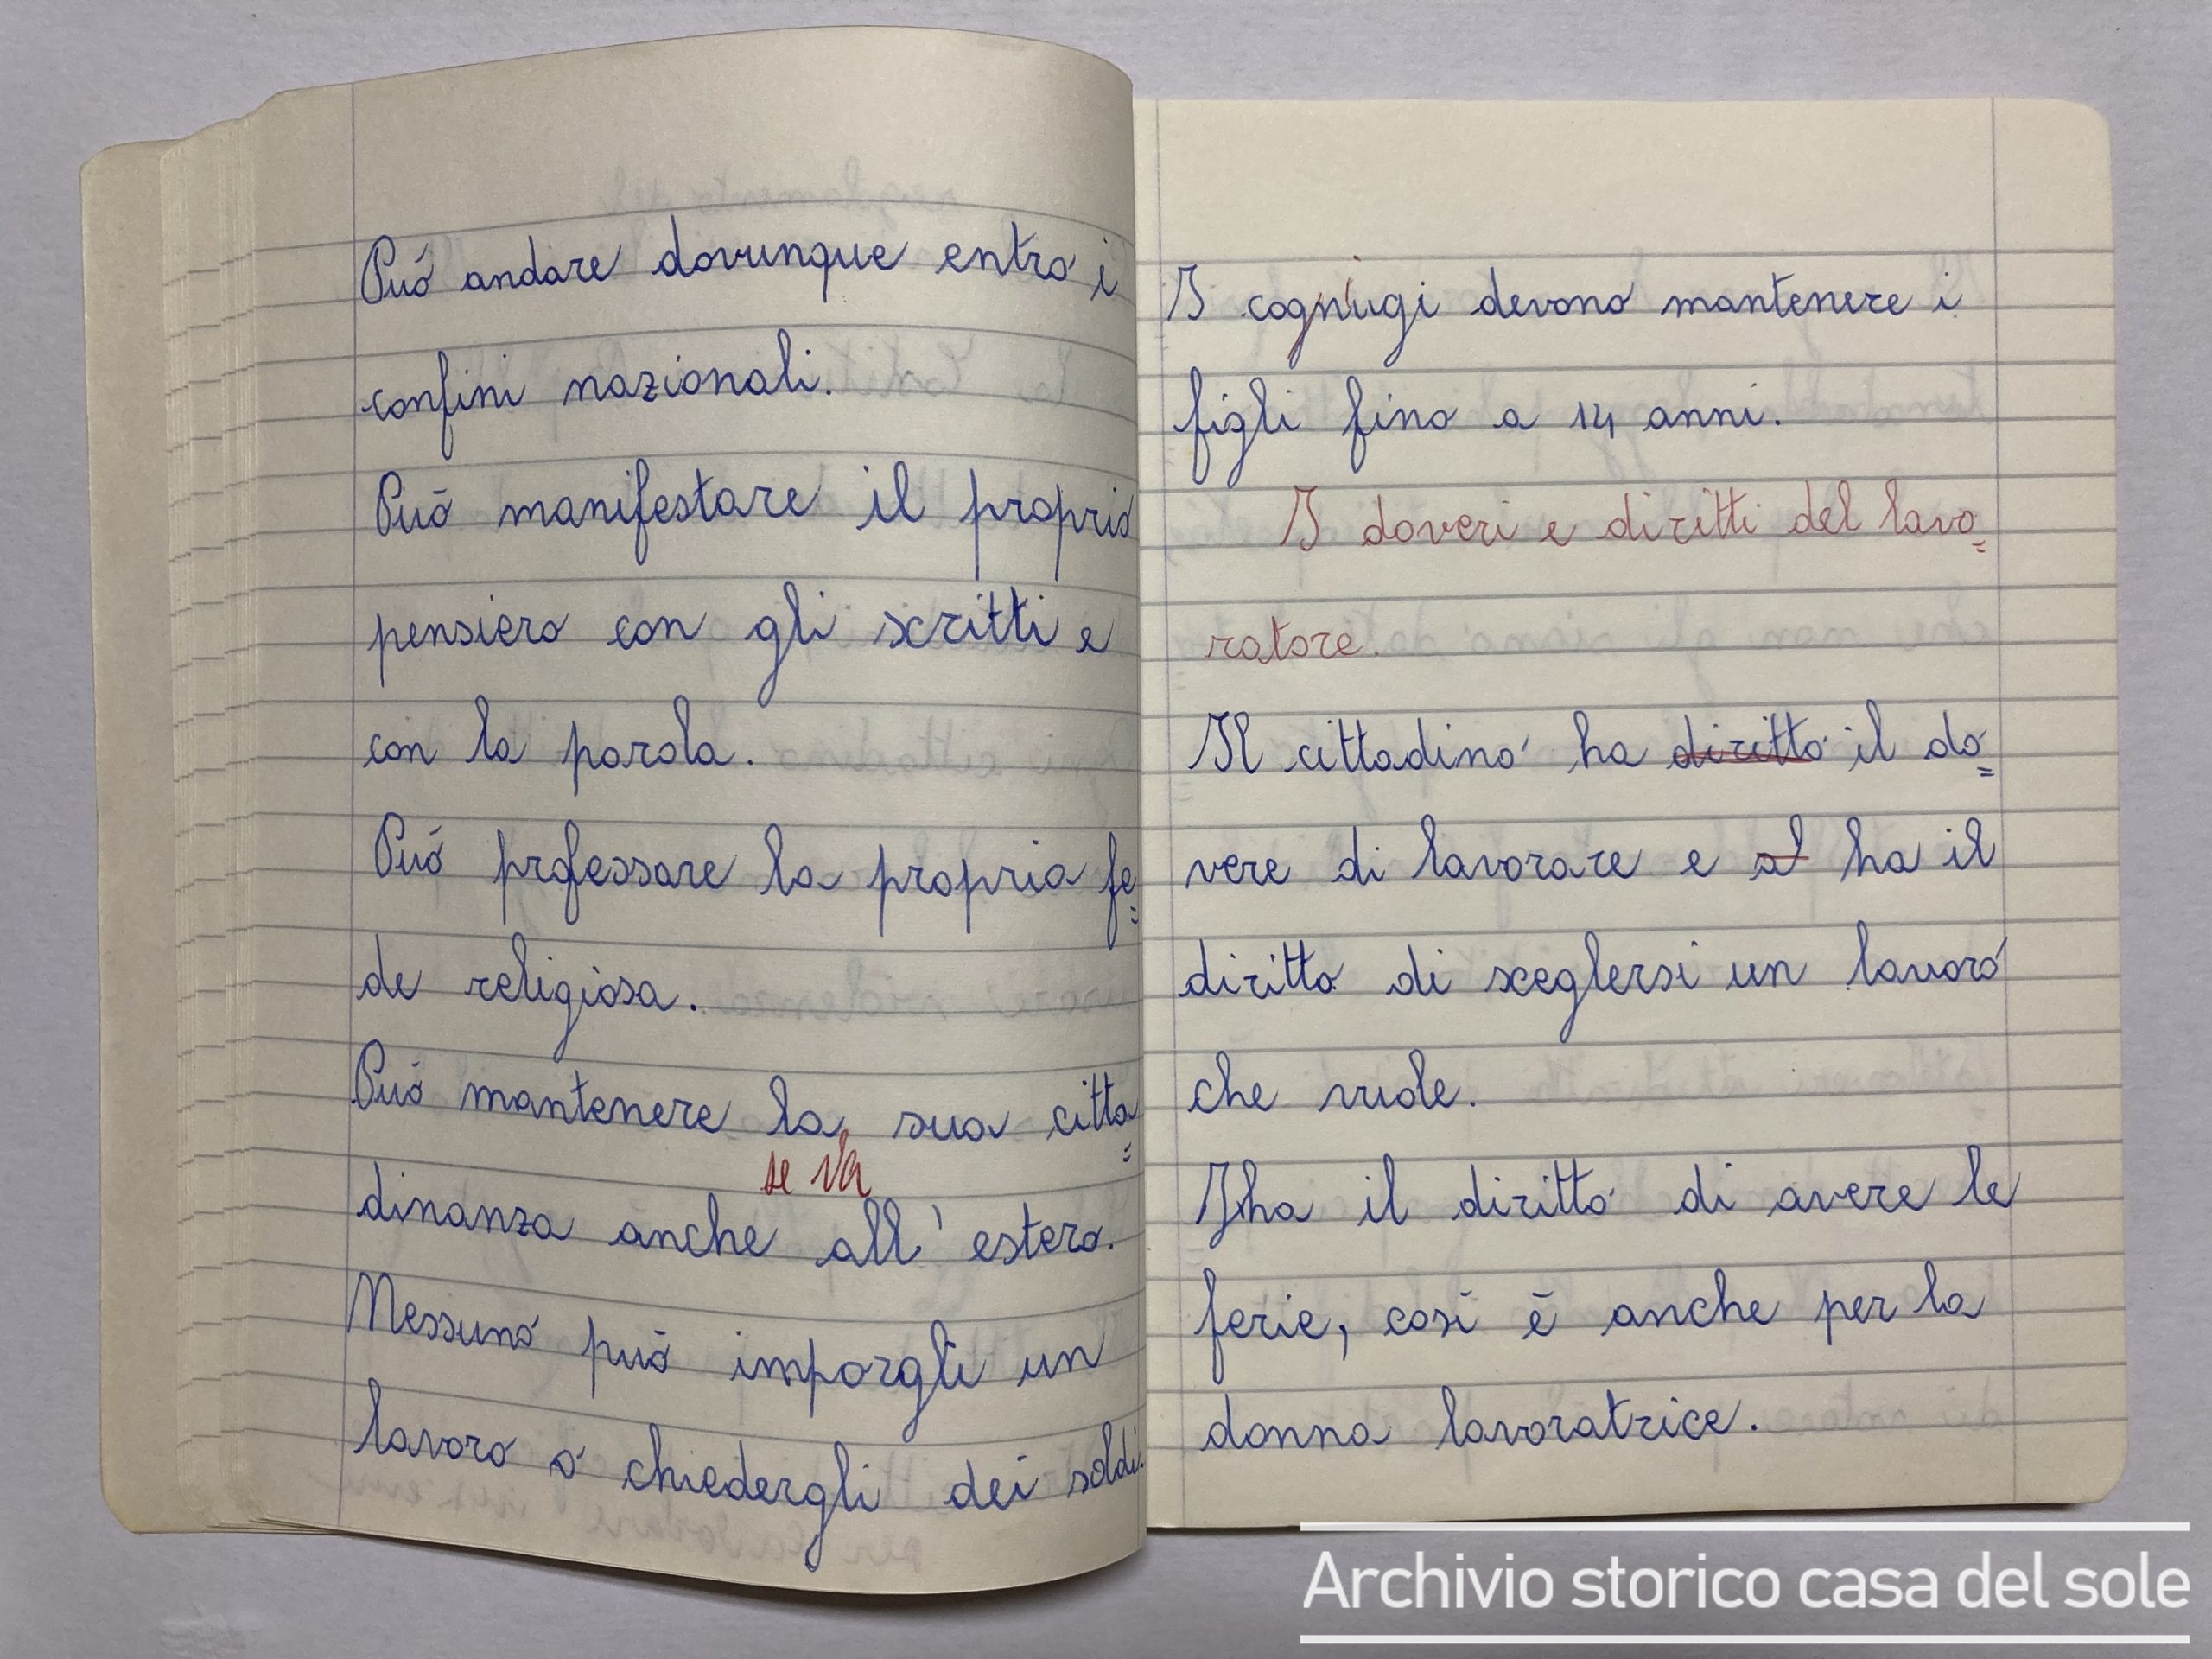 Può andare dovunque entro i
confini nazionali.
Può manifestare il proprio
pensiero con gli scritti e
con la parola.
Può prfessare la propria fe=
de religiosa.
Può mantenere la sua citta=
se va
dinanza anche all' estero.
Nessuno può imporgli un
lavoro o chiedergli dei soldi.
I cogniugi devono mantenere i
figli fino a 14 anni.
I doveri e diritti del lavo=
ratore.
Il cittadino ha diritto il do=
vere di lavorare e al ha il
diritto di sceglersi un lavoro
che vuole.
Iha il diritto di avere le
ferie, così è anche per la
donna lavoratrice.
Archivio storico casa del sole